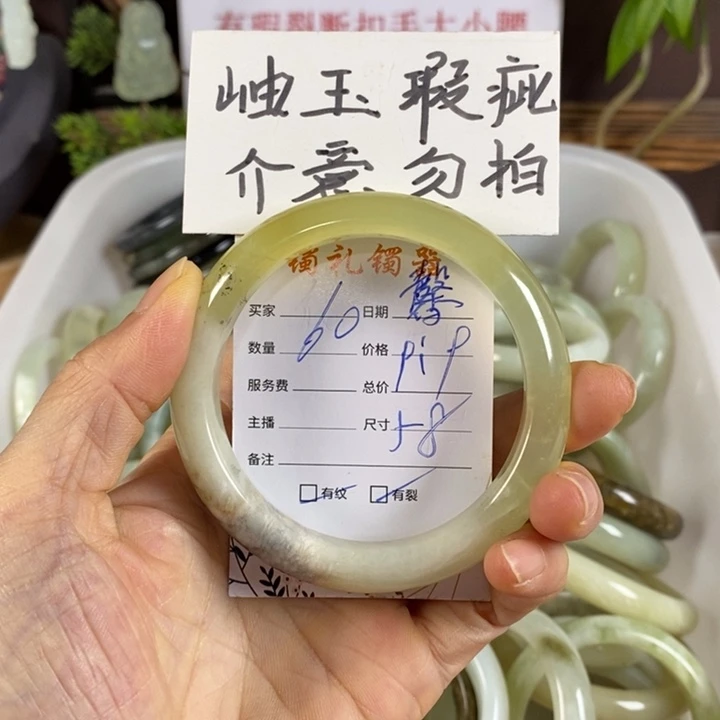 有眼裂断扣手大小腰
岫玉瑕疵
介意勿拍
镯礼镯器
买家 60 日期
数量 价格 pip
服务费 总价
主播 尺寸 58
备注
有纹 有裂